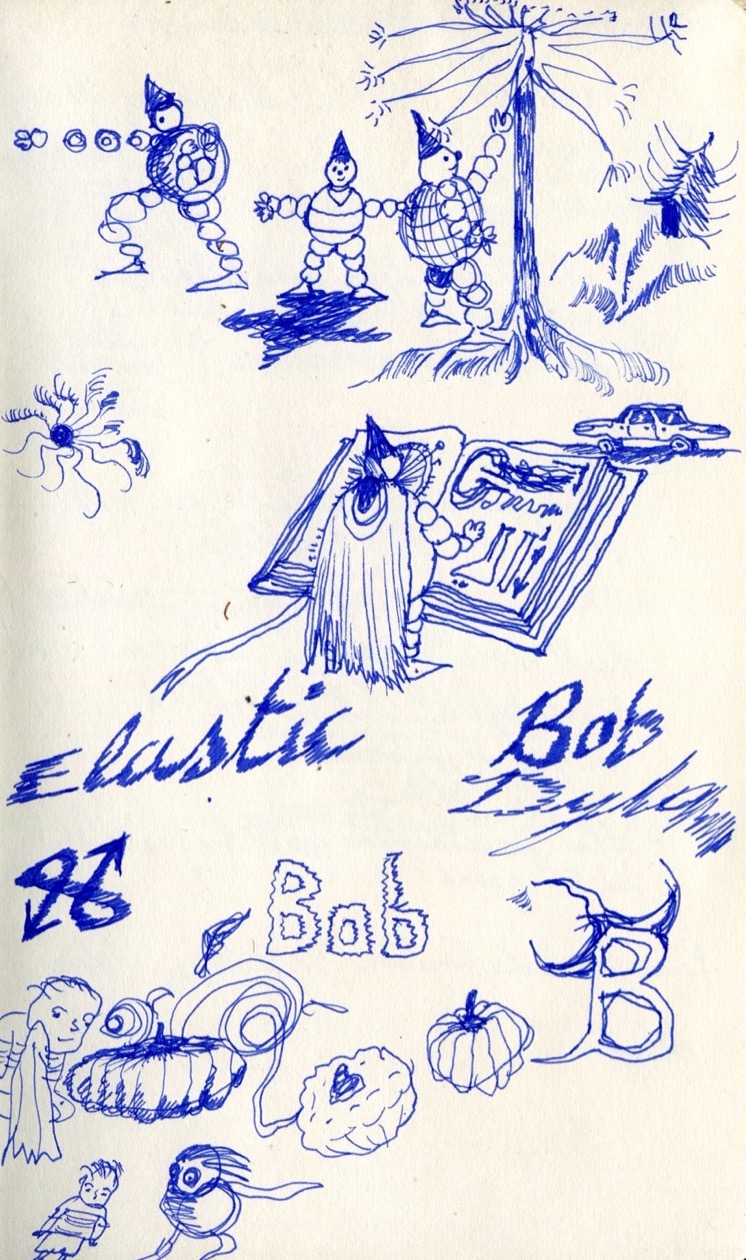 Elastic
Bob
Dylan
Bob
B